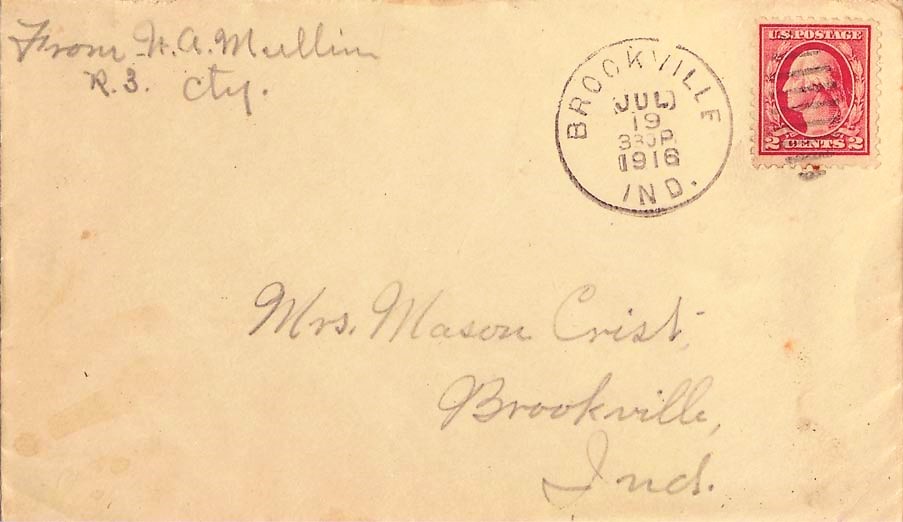 From W. A. Mullin
R. 3. Cty.
BROOKVILLE
JUL
19
330P
1916
IND.
U.S. POSTAGE
2 CENTS 2
Mrs. Mason Crist,
Brookville,
Ind.